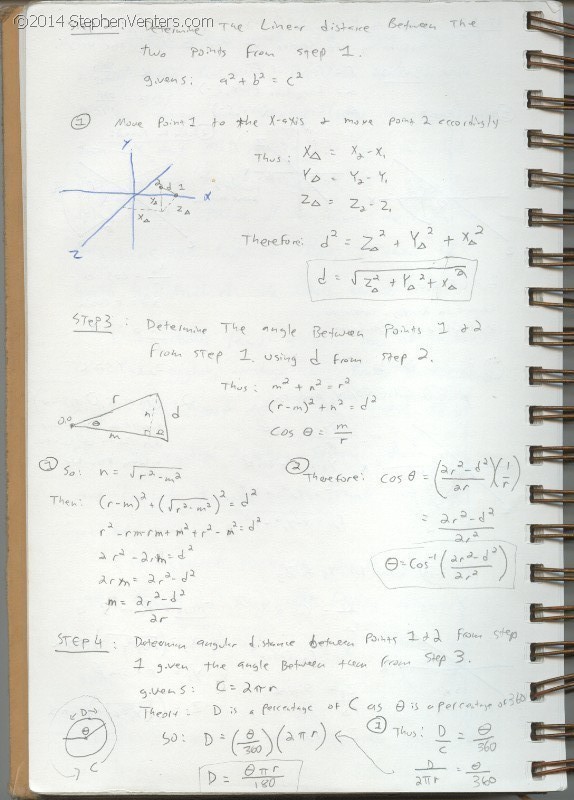 ©2014 StephenVenters.com
The Linear distance Between The
two points from step 1.
givens: a² + b² = c²
① Move Point 1 to the X-axis & move point 2 accordingly
Thus: X△ = X₂ - X₁
Y△ = Y₂ - Y₁
Z△ = Z₂ - Z₁
Y
2 d 1
X
Y△
X△ Z△
Z
Therefore: d² = Z△² + Y△² + X△²
d = √Z△² + Y△² + X△²
Step 3: Determine The angle Between Points 1 & 2
From step 1 using d from step 2.
Thus: m² + n² = r²
(r-m)² + n² = d²
cos θ = m/r
r
n
d
0,0 θ
m
① So: n = √r²-m²
Then: (r-m)² + (√r²-m²)² = d²
r² - rm - rm + m² + r² - m² = d²
2r² - 2rm = d²
2rm = 2r² - d²
m = 2r² - d² / 2r
② Therefore: cos θ = (2r² - d² / 2r)(1/r)
= 2r² - d² / 2r²
θ = cos⁻¹(2r² - d² / 2r²)
STEP 4: Determin angular distance between points 1 & 2 from step
1 given the angle Between them From Step 3.
givens: C = 2πr
Theory: D is a percentage of C as θ is a percentage of 360
D
θ
C
① Thus: D/C = θ/360
D/2πr = θ/360
So: D = (θ/360)(2πr)
D = θπr/180